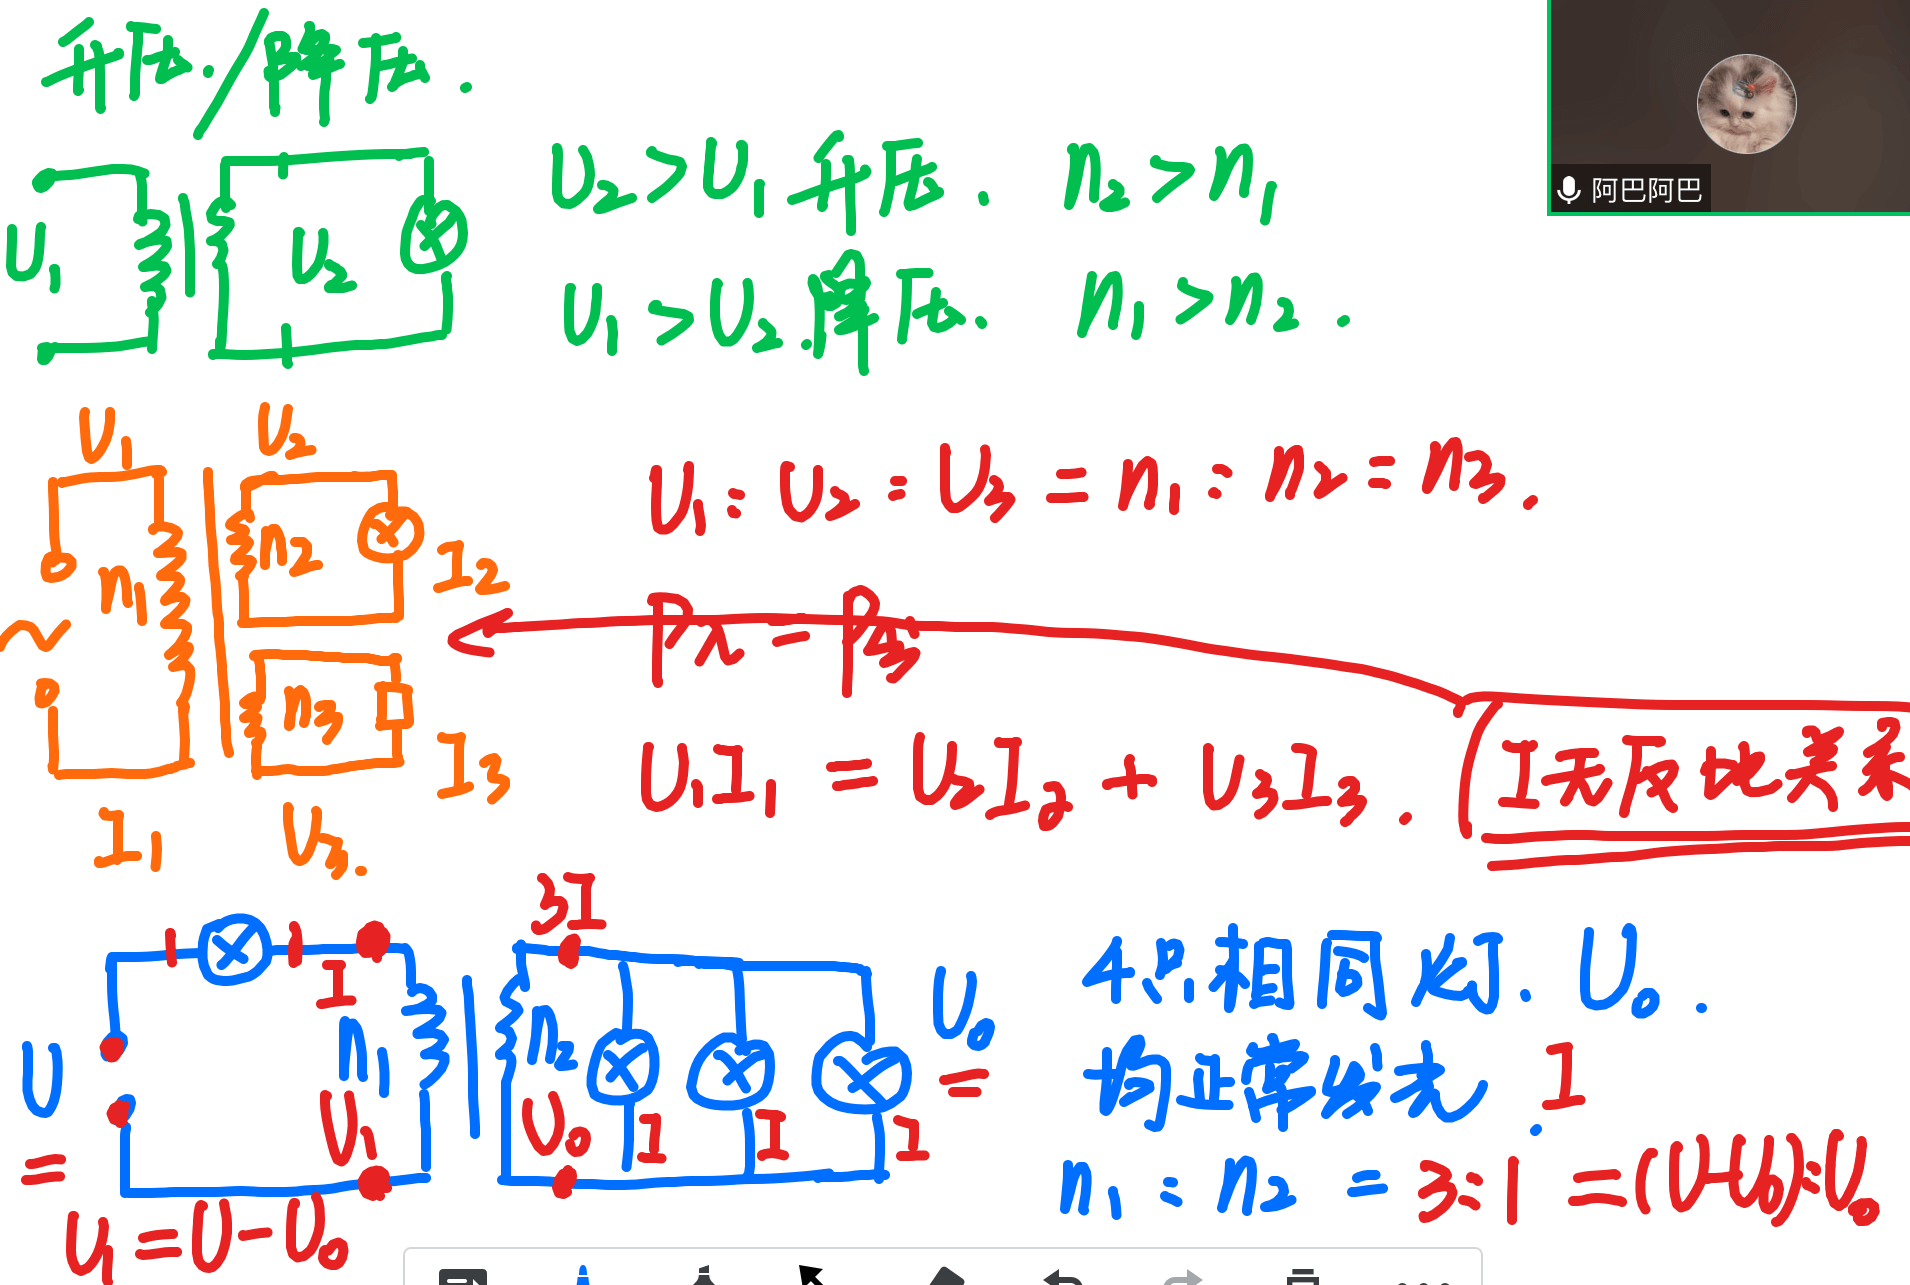 升压./降压.
阿巴阿巴
U₁
U₂
U₂>U₁ 升压. n₂>n₁
U₁>U₂.降压. n₁>n₂.
U₁
U₂
n₁
n₂
I₂
n₃
I₃
I₁
U₃.
U₁:U₂:U₃=n₁:n₂=n₃.
P入=P出
U₁I₁=U₂I₂+U₃I₃.
I无反比关系
3I
I
U
=
n₁
n₂
U₁
U₀
I I I
U₀
=
U₁=U-U₀
4只相同灯. U₀.
均正常发光. I
n₁:n₂=3:1=(U-U₀):U₀